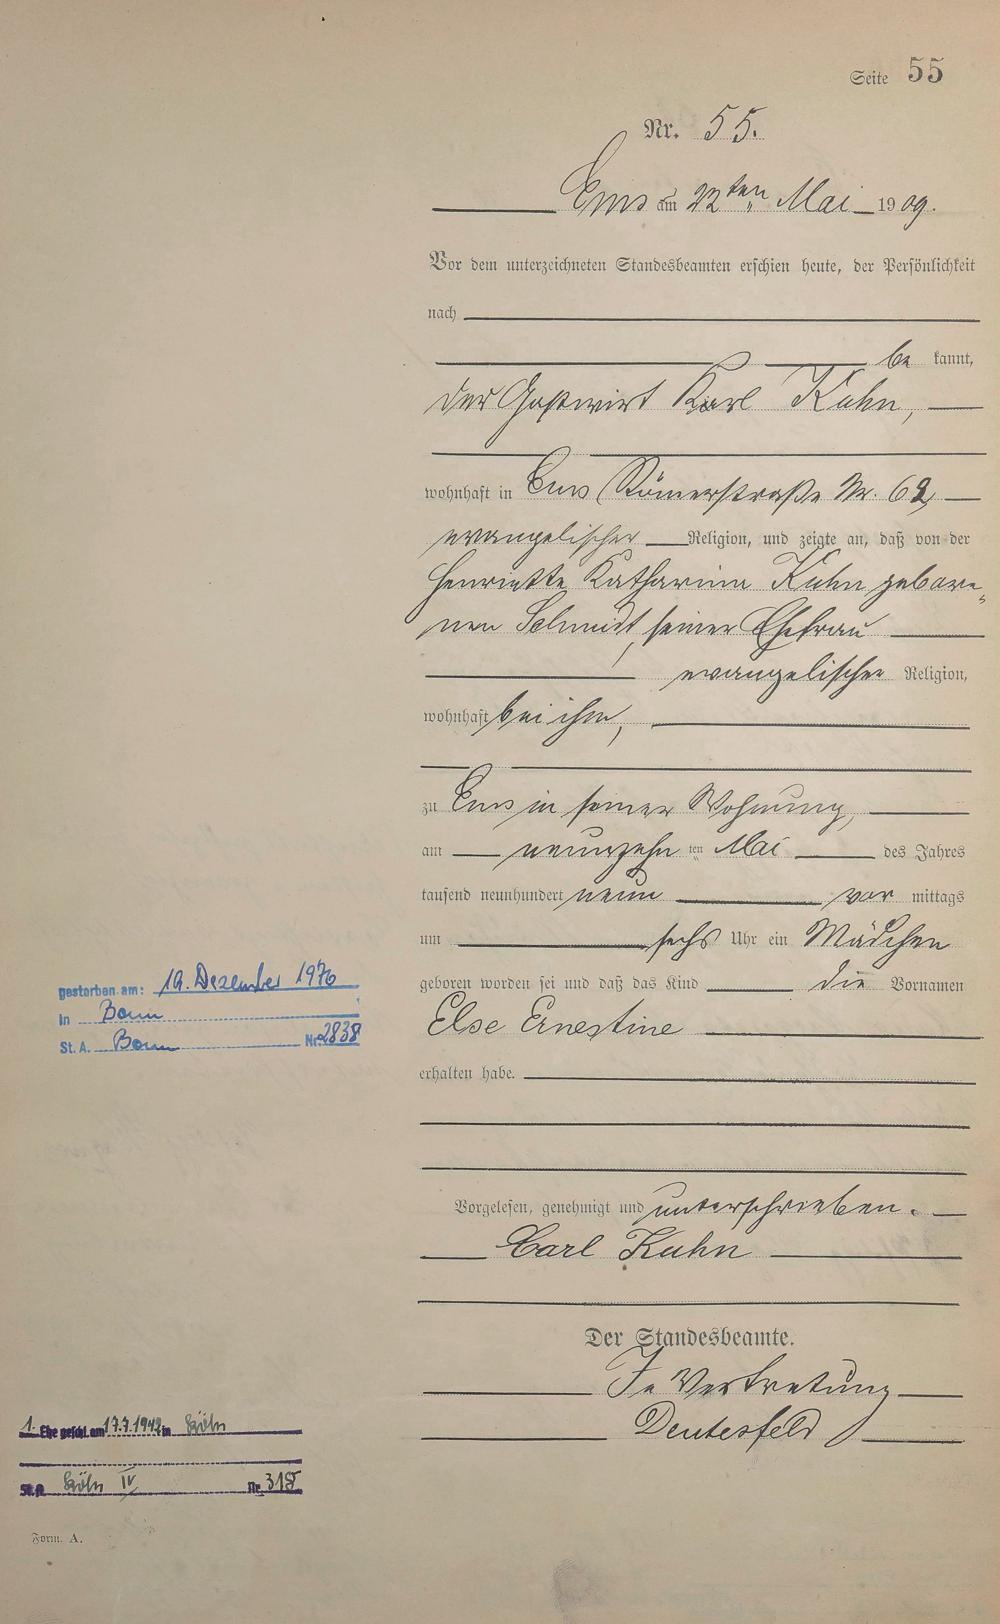 Seite 55
Nr. 55.
Ems am 22ten Mai 1909.
Vor dem unterzeichneten Standesbeamten erschien heute, der Persönlichkeit
nach
be kannt,
der Gastwirt Karl Kuhn,
wohnhaft in Ems Römerstraße Nr. 62,
evangelischer Religion, und zeigte an, daß von der
Henriette Katharina Kuhn gebore-
nen Schmidt, seiner Ehefrau
evangelischer Religion,
wohnhaft bei ihm,
zu Ems in seiner Wohnung,
am neunzehn ten Mai des Jahres
tausend neunhundert neun vor mittags
um sechs Uhr ein Mädchen
geboren worden sei und daß das Kind die Vornamen
Else Ernestine
erhalten habe.
Vorgelesen, genehmigt und unterschrieben.
Carl Kuhn
Der Standesbeamte.
In Vertretung
Deutesfeld
gestorben am: 19. Dezember 1976
in Bonn
St. A. Bonn Nr. 2838
1. Ehe geschl. am 17.7.1942 in Köln
St.A. Köln IV Nr. 318
Form. A.